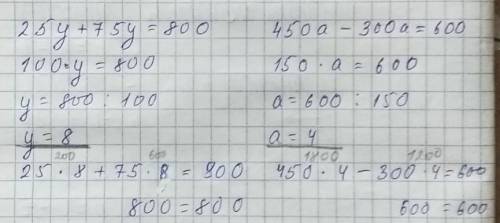 25y + 75y = 800
100·y = 800
y = 800 : 100
y = 8
200 600
25 · 8 + 75 · 8 = 800
800 = 800
450a - 300a = 600
150 · a = 600
a = 600 : 150
a = 4
1800 1200
450 · 4 - 300 · 4 = 600
600 = 600